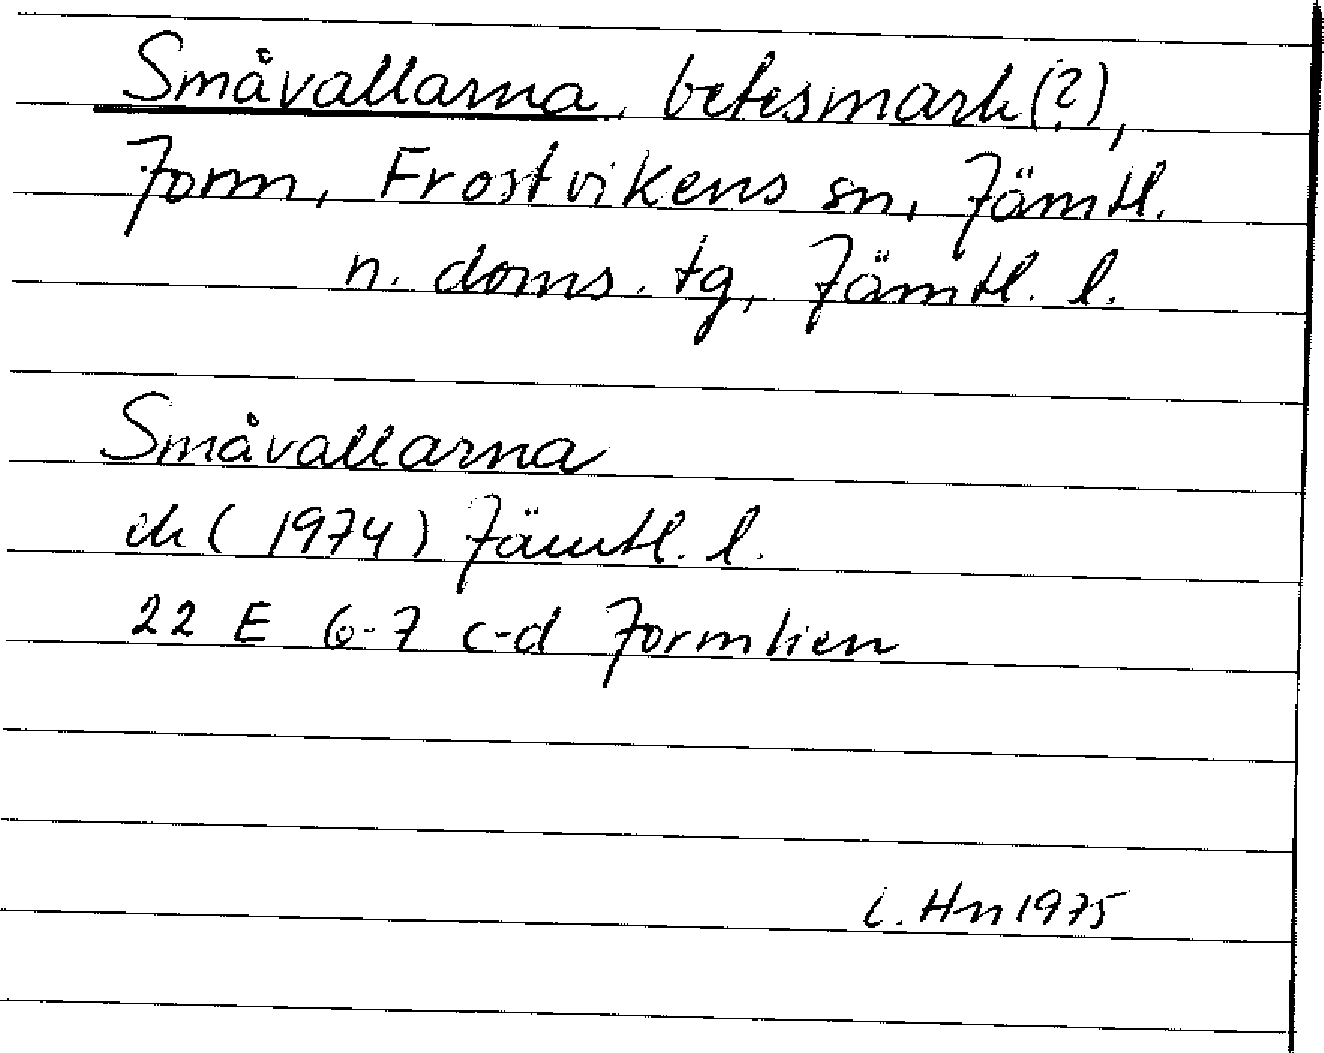 Småvallarna, betesmark(?),
Jorm, Frostvikens sn, Jämtl.
n. doms. tg, Jämtl. l.
Småvallarna
ek (1974) Jämtl. l.
22 E 6-7 c-d Jormlien
C. Hn 1975